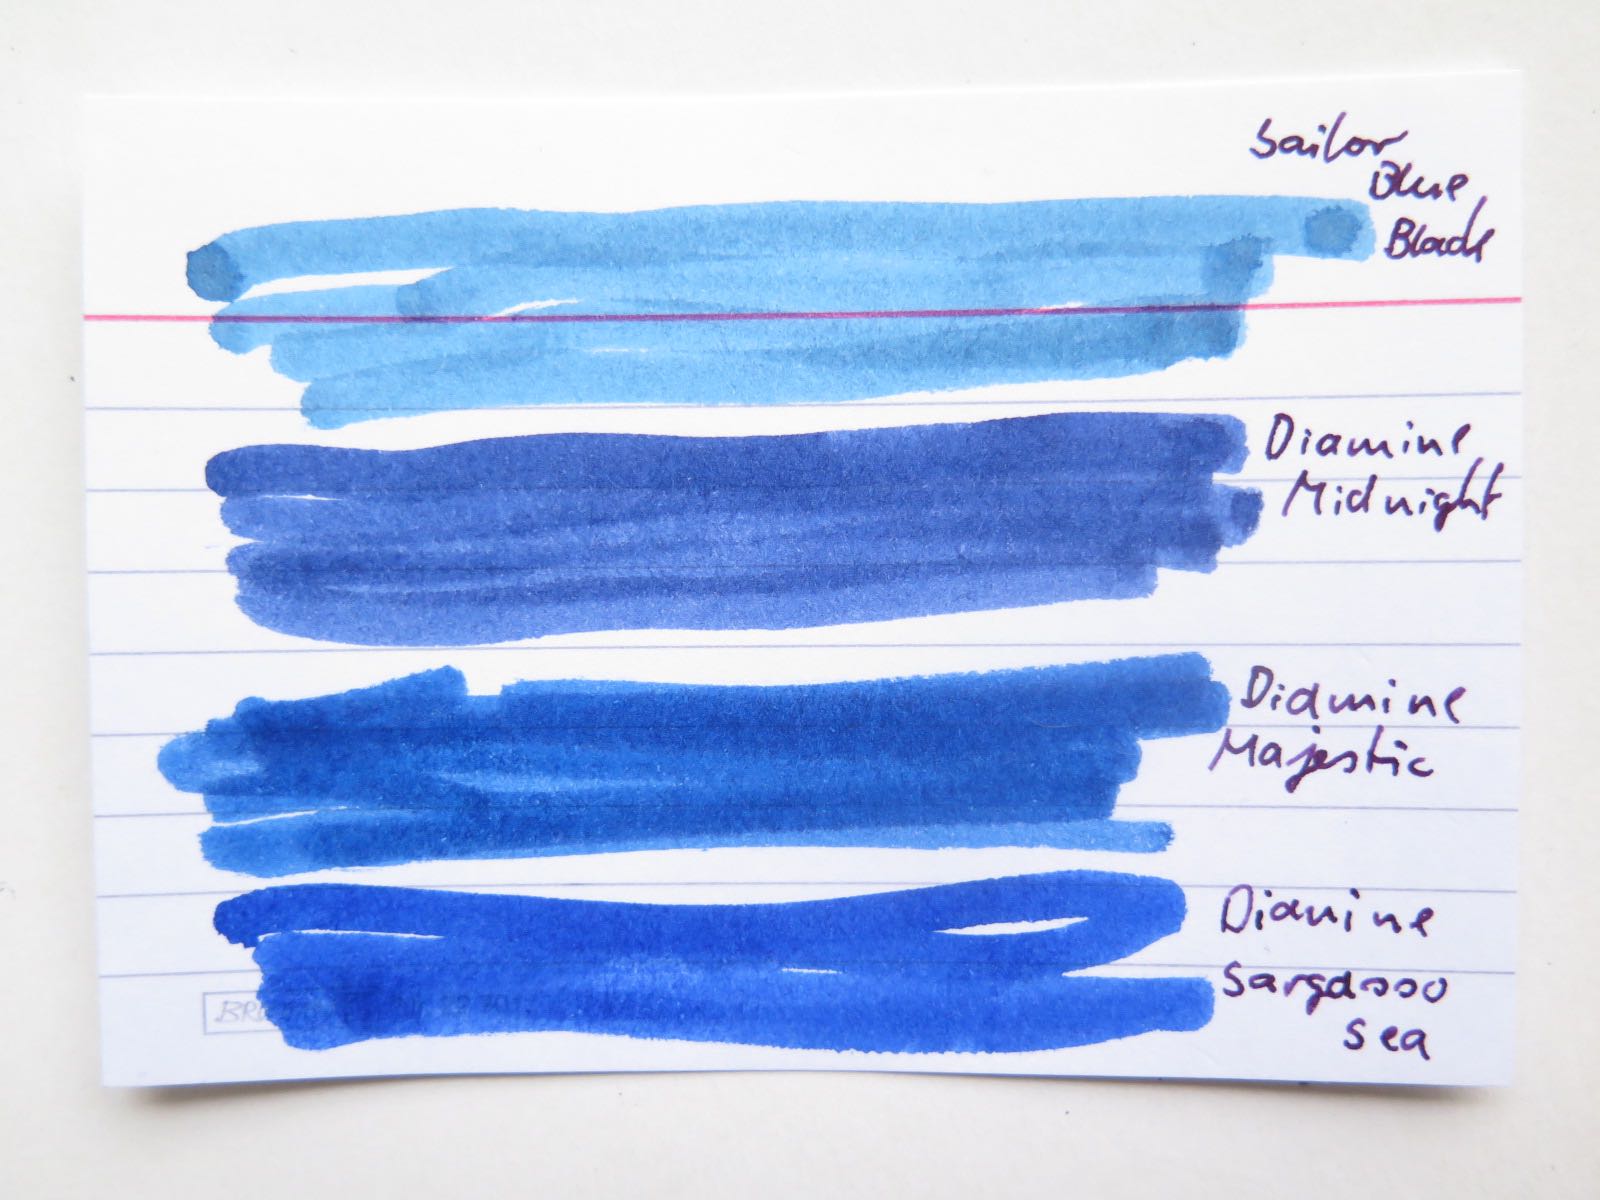 Sailor
Blue
Black
Diamine
Midnight
Diamine
Majestic
Diamine
Sargasso
Sea